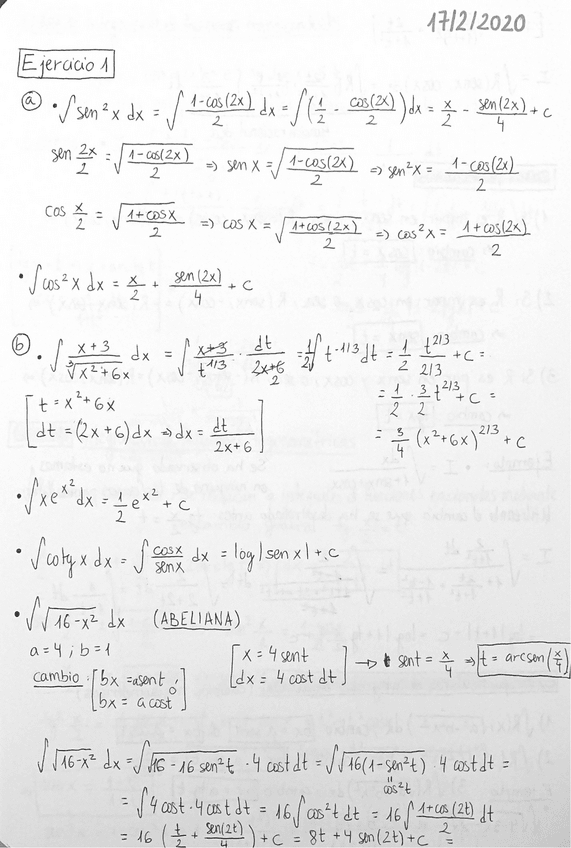 17/2/2020
Ejercicio 1
ⓐ • ∫ sen²x dx = ∫ (1-cos(2x))/2 dx = ∫(1/2 - cos(2x)/2)dx = x/2 - sen(2x)/4 + c
sen 2x/2 = √((1-cos(2x))/2) ⇒ sen x = √((1-cos(2x))/2) ⇒ sen²x = (1-cos(2x))/2
cos x/2 = √((1+cosx)/2) ⇒ cos x = √((1+cos(2x))/2) ⇒ cos²x = (1+cos(2x))/2
• ∫cos²x dx = x/2 + sen(2x)/4 + c
ⓑ • ∫ (x+3)/∛(x²+6x) dx = ∫ (x+3)/t^(1/3) · dt/(2x+6) = 1/2 ∫ t^(-1/3) dt = 1/2 t^(2/3)/(2/3) + c =
= 1/2 · 3/2 t^(2/3) + c =
= 3/4 (x²+6x)^(2/3) + c
[t = x²+6x
dt = (2x+6)dx ⇒ dx = dt/(2x+6)]
• ∫xe^(x²)dx = 1/2 e^(x²) + c
• ∫cotg x dx = ∫ cosx/senx dx = log|sen x| + c
• ∫√(16-x²) dx (ABELIANA)
a=4 ; b=1
cambio: [bx = asent ó
bx = a cost]
[x = 4 sent
dx = 4 cost dt] → sent = x/4 ⇒ t = arcsen(x/4)
∫√(16-x²) dx = ∫√(16-16sen²t) · 4 cost dt = ∫√(16(1-sen²t)) · 4 cost dt =
cos²t
= ∫4cost · 4cost dt = 16∫cos²t dt = 16∫ (1+cos(2t))/2 dt
= 16 (t/2 + sen(2t)/4) + c = 8t + 4 sen(2t) + c =